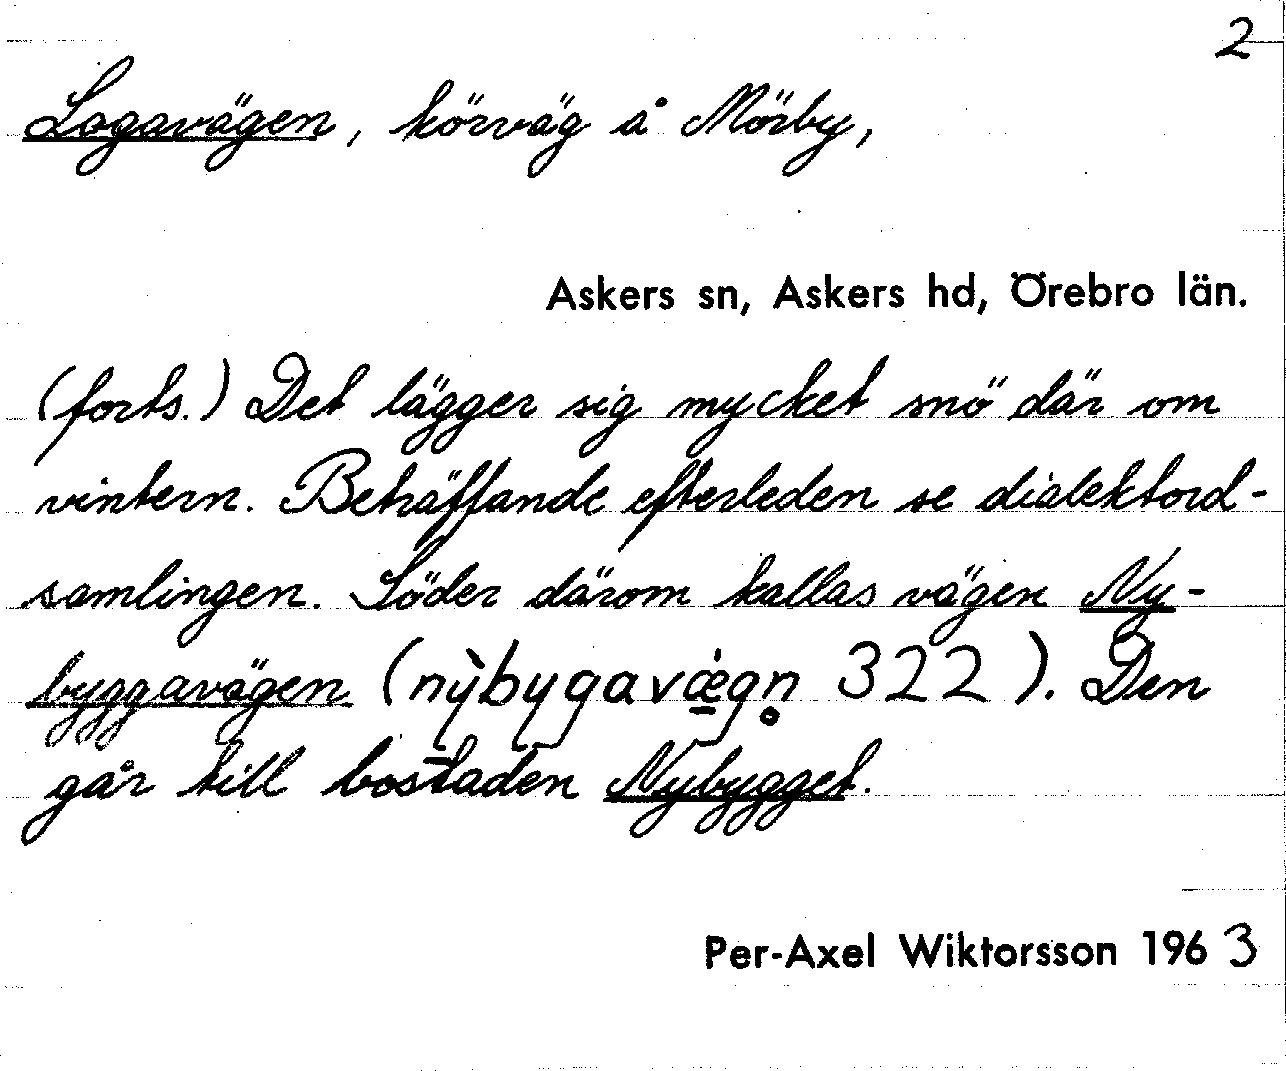 2
Logavägen, körväg å Mörby,
Askers sn, Askers hd, Örebro län.
(forts.) Det lägger sig mycket snö där om
vintern. Beträffande efterleden se dialektord-
samlingen. Söder därom kallas vägen Ny-
byggavägen (nỳbygavǽ̠gn̥ 322). Den
går till bostaden Nybygget.
Per-Axel Wiktorsson 1963